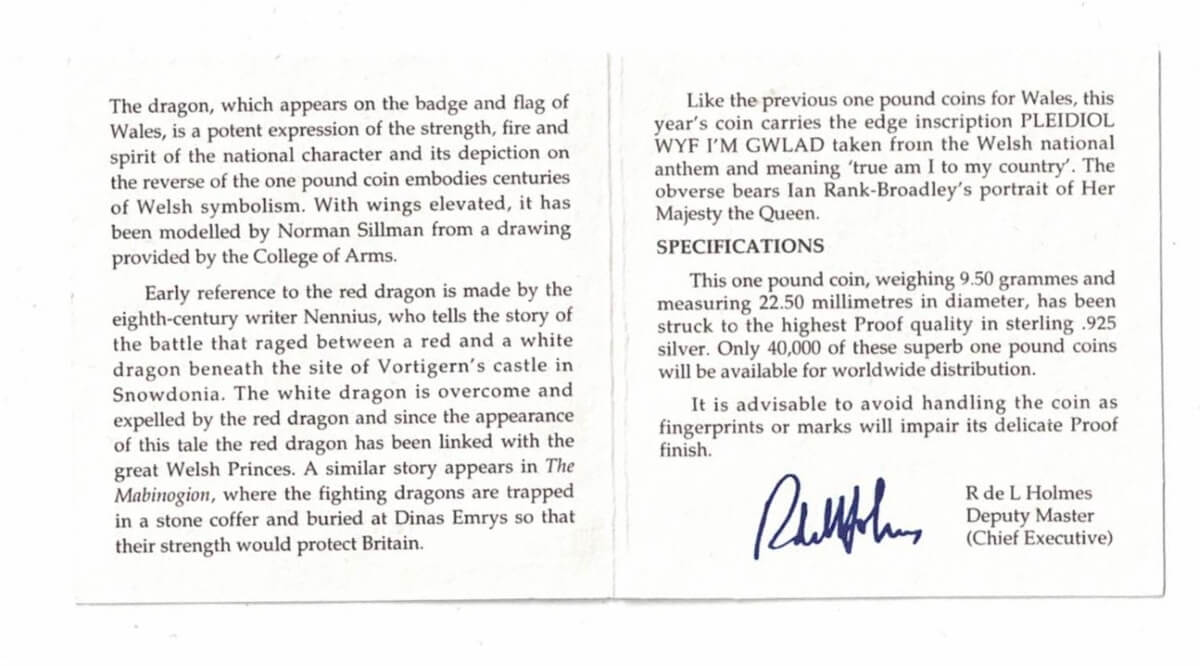 The dragon, which appears on the badge and flag of
Wales, is a potent expression of the strength, fire and
spirit of the national character and its depiction on
the reverse of the one pound coin embodies centuries
of Welsh symbolism. With wings elevated, it has
been modelled by Norman Sillman from a drawing
provided by the College of Arms.
Early reference to the red dragon is made by the
eighth-century writer Nennius, who tells the story of
the battle that raged between a red and a white
dragon beneath the site of Vortigern's castle in
Snowdonia. The white dragon is overcome and
expelled by the red dragon and since the appearance
of this tale the red dragon has been linked with the
great Welsh Princes. A similar story appears in The
Mabinogion, where the fighting dragons are trapped
in a stone coffer and buried at Dinas Emrys so that
their strength would protect Britain.
Like the previous one pound coins for Wales, this
year's coin carries the edge inscription PLEIDIOL
WYF I'M GWLAD taken from the Welsh national
anthem and meaning 'true am I to my country'. The
obverse bears Ian Rank-Broadley's portrait of Her
Majesty the Queen.
SPECIFICATIONS
This one pound coin, weighing 9.50 grammes and
measuring 22.50 millimetres in diameter, has been
struck to the highest Proof quality in sterling .925
silver. Only 40,000 of these superb one pound coins
will be available for worldwide distribution.
It is advisable to avoid handling the coin as
fingerprints or marks will impair its delicate Proof
finish.
RdeLHolmes
R de L Holmes
Deputy Master
(Chief Executive)